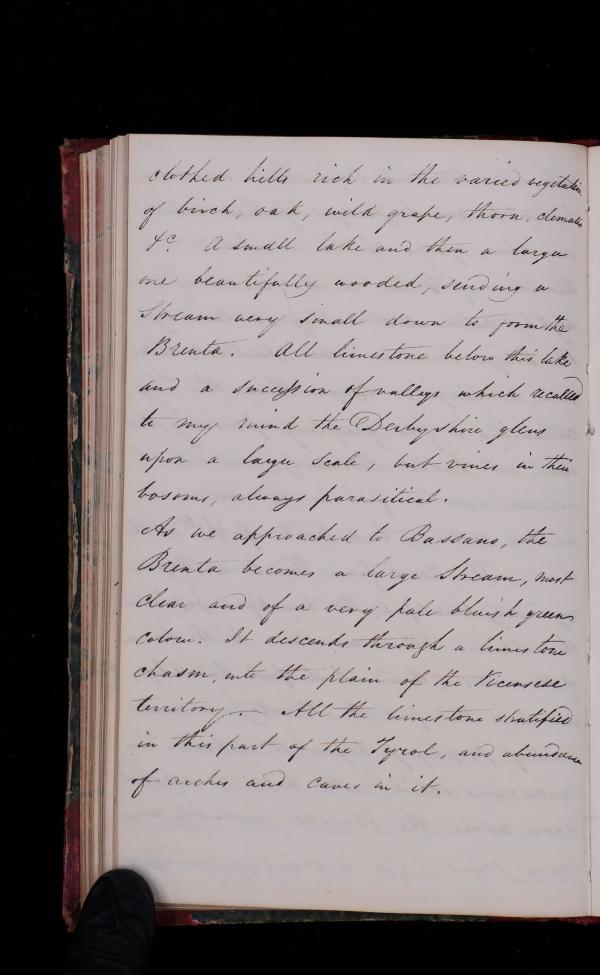 clothed hills rich in the varied vegetation
of birch, oak, wild grape, thorn, clematis
&c. A small lake and then a large
one beautifully wooded, sending a
stream very small down to form the
Brenta. All limestone below this lake
and a succession of valleys which recalled
to my mind the Derbyshire glens
upon a large scale, but vines in their
bosoms, always parasitical.
As we approached to Bassano, the
Brenta becomes a large stream, most
clear and of a very pale bluish green
colour. It descends through a limestone
chasm, into the plain of the Vicensese
territory. All the limestone stratified
in this part of the Tyrol, and abundance
of arches and caves in it.